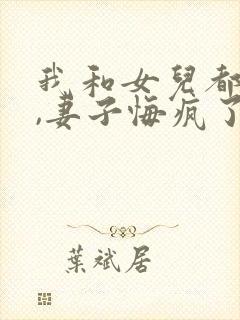 我和女兒都
,妻子悔瘋了
葉斌居